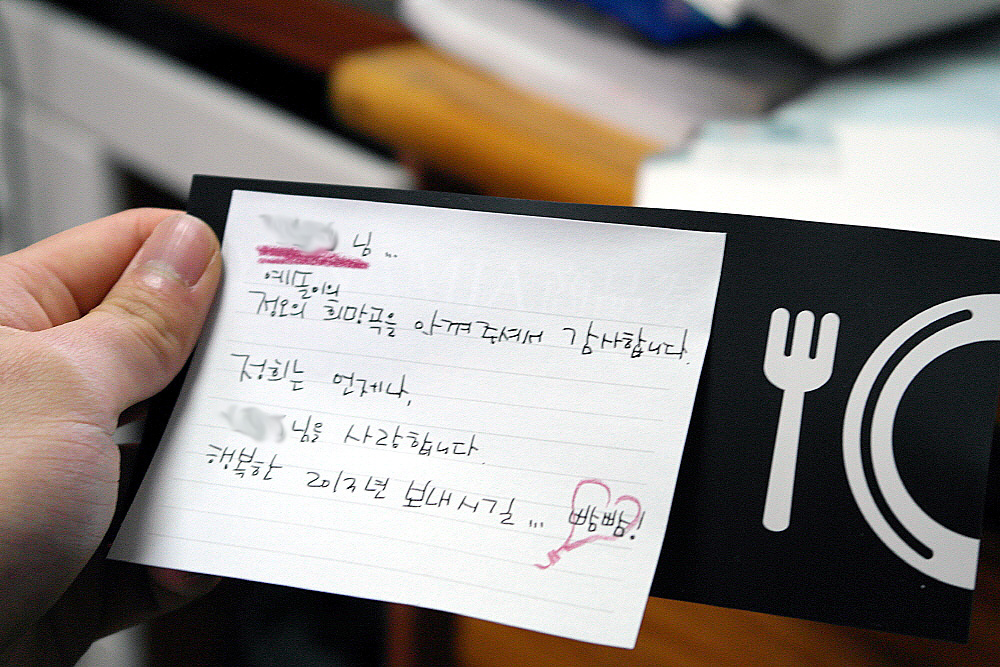 님 ...
정오의 희망곡을 아껴주셔서 감사합니다.
정희는 언제나,
님을 사랑합니다.
행복한 2013년 보내시길 ... 빰빰!